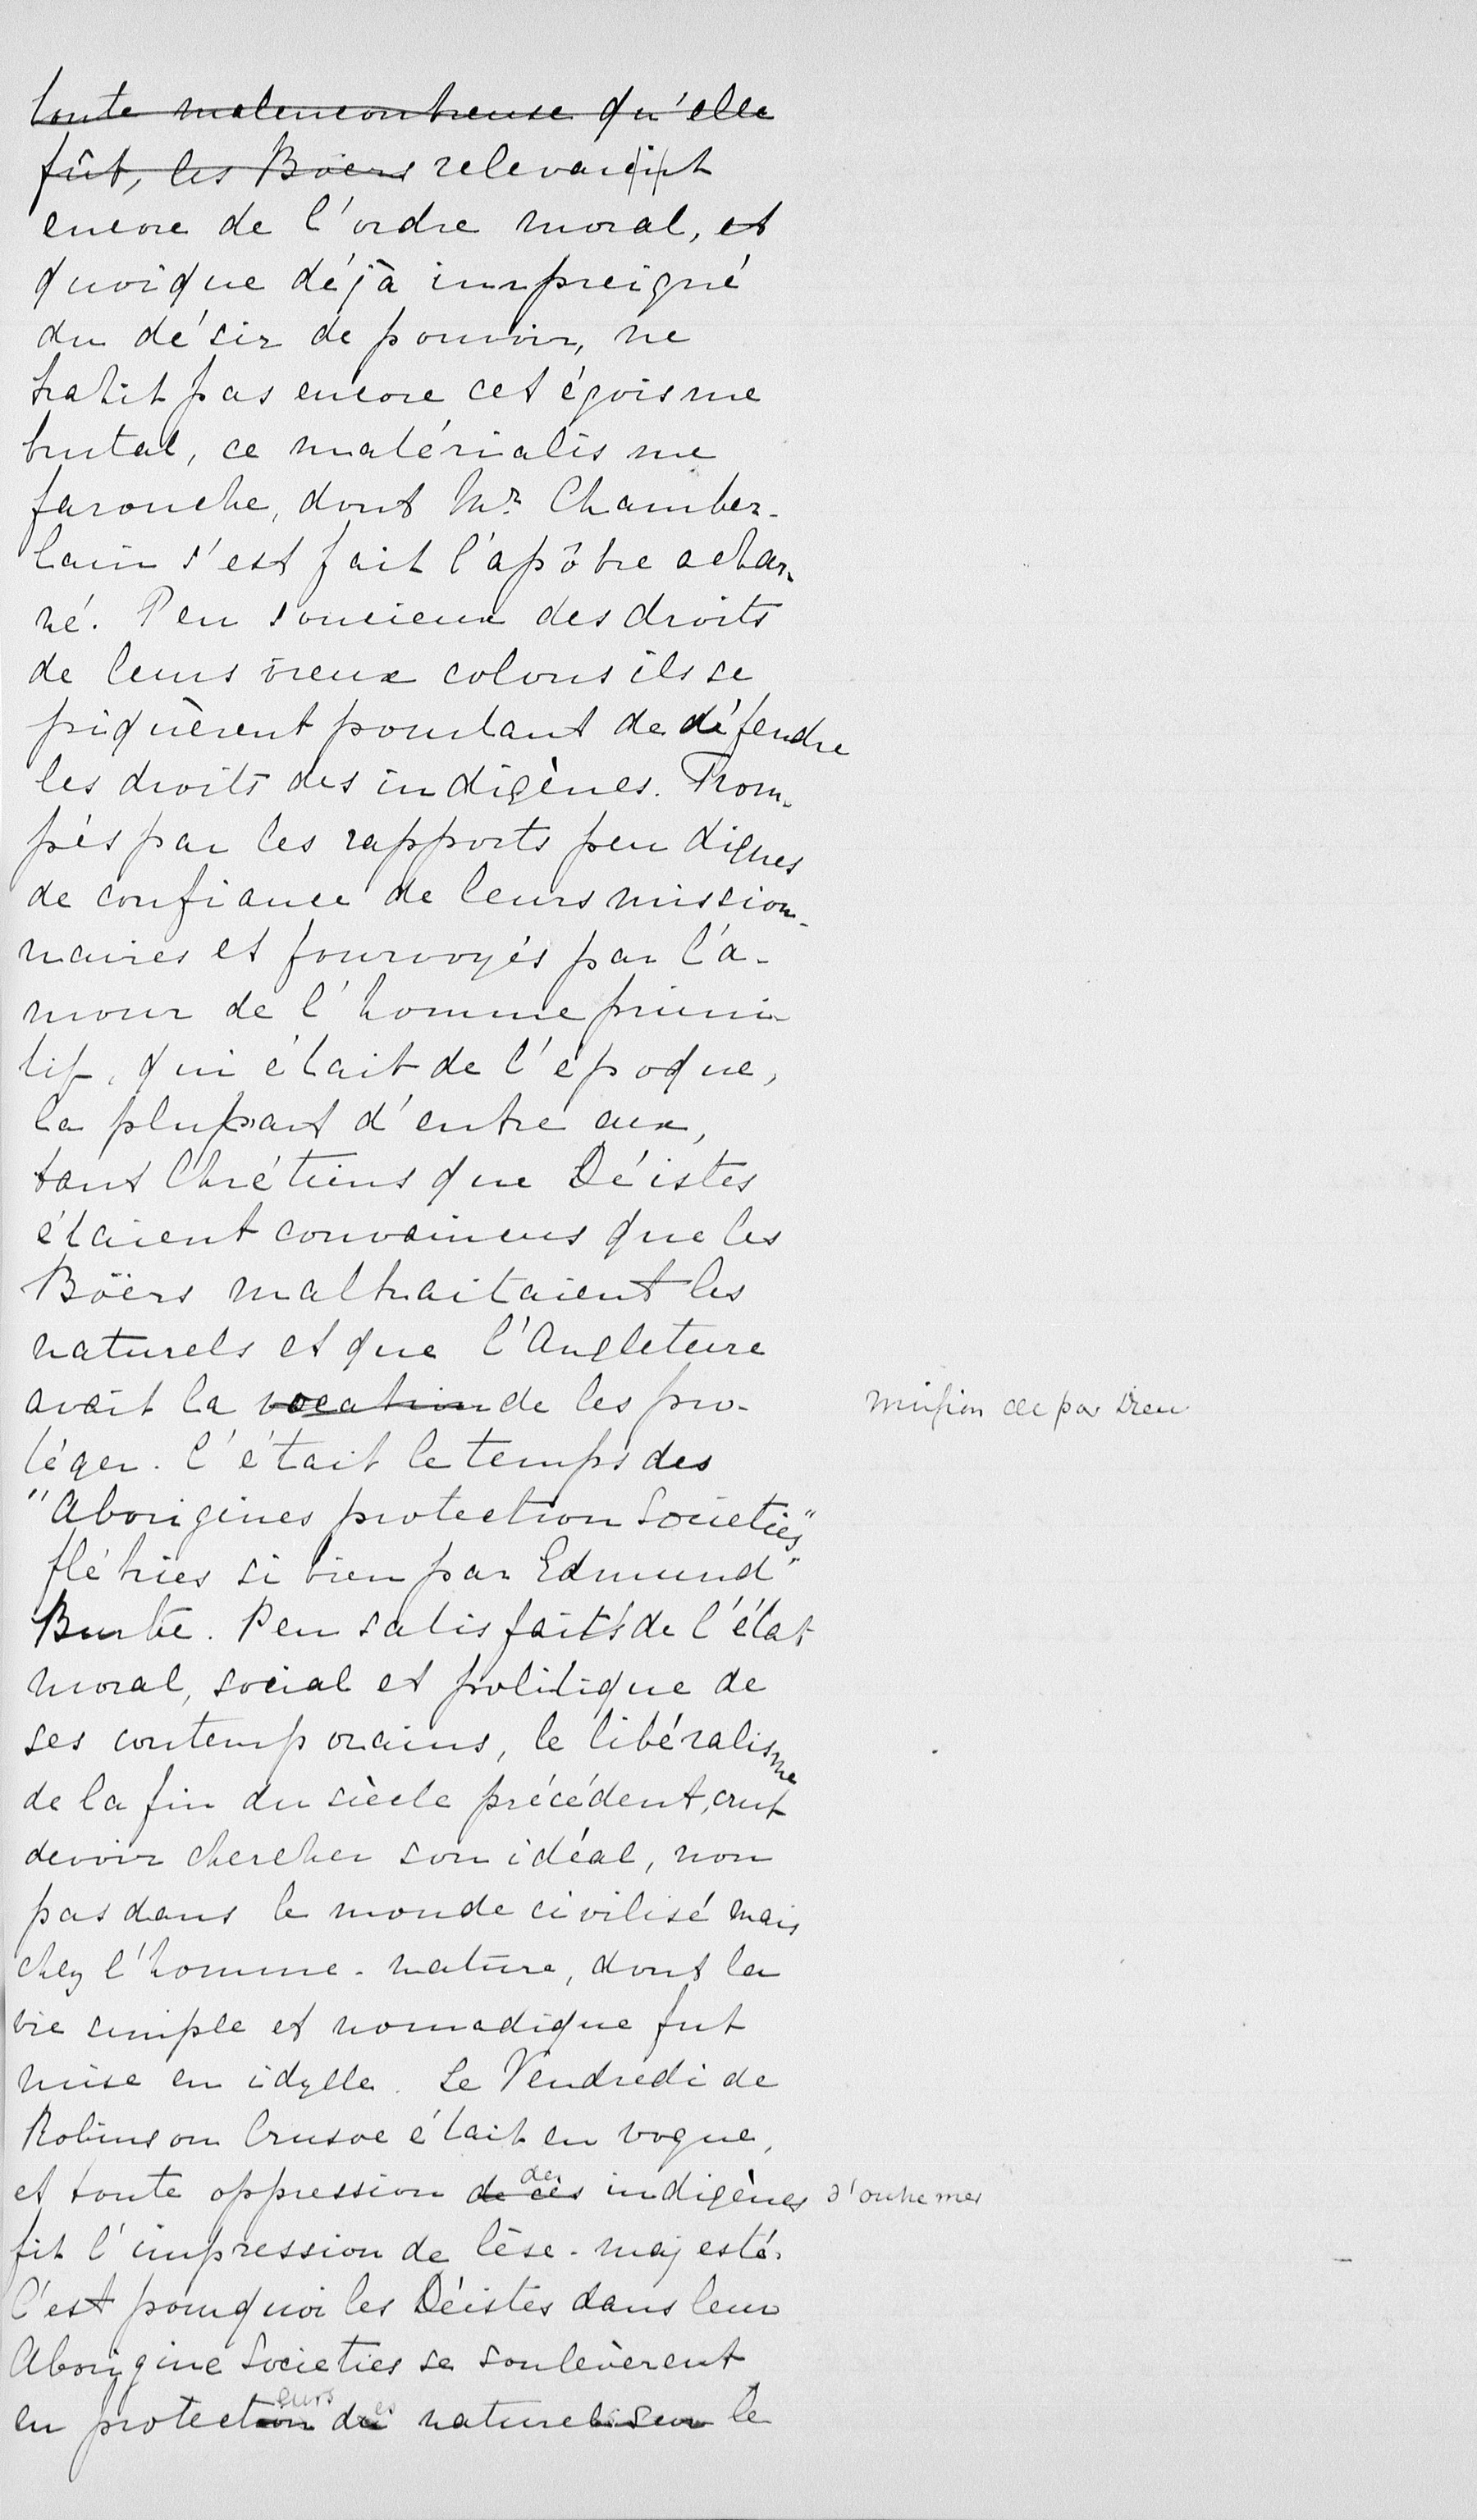 toute malencontreuse qu'elle
fût, les Boërs relevaient
encore de l'ordre moral, et
quoique déjà impreigné
du désir de pouvoir, ne
trahit pas encore cet égoisme
brutal, ce matérialisme
farouche, dont Mr. Chamber-
lain s'est fait l'apôtre achar-
né. Peu soucieux des droits
de leurs vieux colons ils se
piquèrent pourtant de défendre
les droits des indigènes. Trom-
pés par les rapports peu dignes
de confiance de leurs mission-
naires et fourvoyés par l'a-
mour de l'homme primi-
tif, qui était de l'époque,
la plupart d'entre eux,
tant Chrétiens que Déistes
étaient convaincus que les
Boërs maltraitaient les
naturels et que l'Angleterre
avait la vocation de les pro- mission de par Dieu
téger. C'était le temps des
"Aborigines protection Societies"
flétries si bien par Edmund
Burke. Peu satisfaits de l'état
moral, social et politique de
ses contemporains, le libéralisme
de la fin du siècle précédent, crut
devoir chercher son idéal, non
pas dans le monde civilisé mais
chez l'homme-nature, dont la
vie simple et nomadique fut
mise en idylle. Le Vendredi de
Robinson Crusoe était en vogue,
et toute oppression de ces des indigènes d'outre mer
fit l'impression de lèse-majesté.
C'est pourquoi les Déistes dans leur
Aborigine Societies se soulevèrent
en protection eurs des naturels sur le